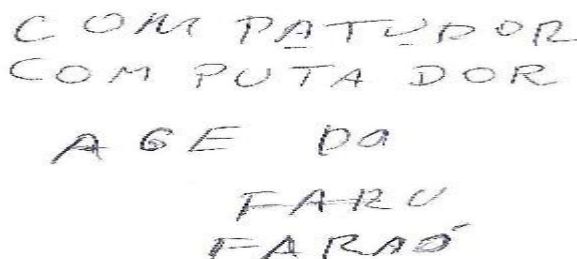 COMPATUDOR
COMPUTADOR
AGE DO
FARU
FARAÓ